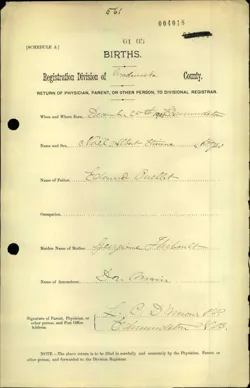 561
004018
01 05
[SCHEDULE A]
BIRTHS.
Registration Division of Madawaska County.
RETURN OF PHYSICIAN, PARENT, OR OTHER PERSON, TO DIVISIONAL REGISRAR.
When and Where Born, December 25th Edmundston
Name and Sex, Noël Albert
Name of Father, Edmund Ouellet
Occupation,
Maiden Name of Mother, Georgianna Thibault
Name of Accoucheur,
Signature of Parent, Physician, or
other person, and Post Office
Address.
Edmundston N.B.
NOTE.—The above return is to be filled in carefully, and accurately by the Physician, Parent, or
other person, and forwarded to the Division Registrar.